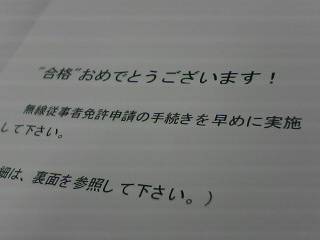 "合格"おめでとうございます！
無線従事者免許申請の手続きを早めに実施
して下さい。
細は、裏面を参照して下さい。）